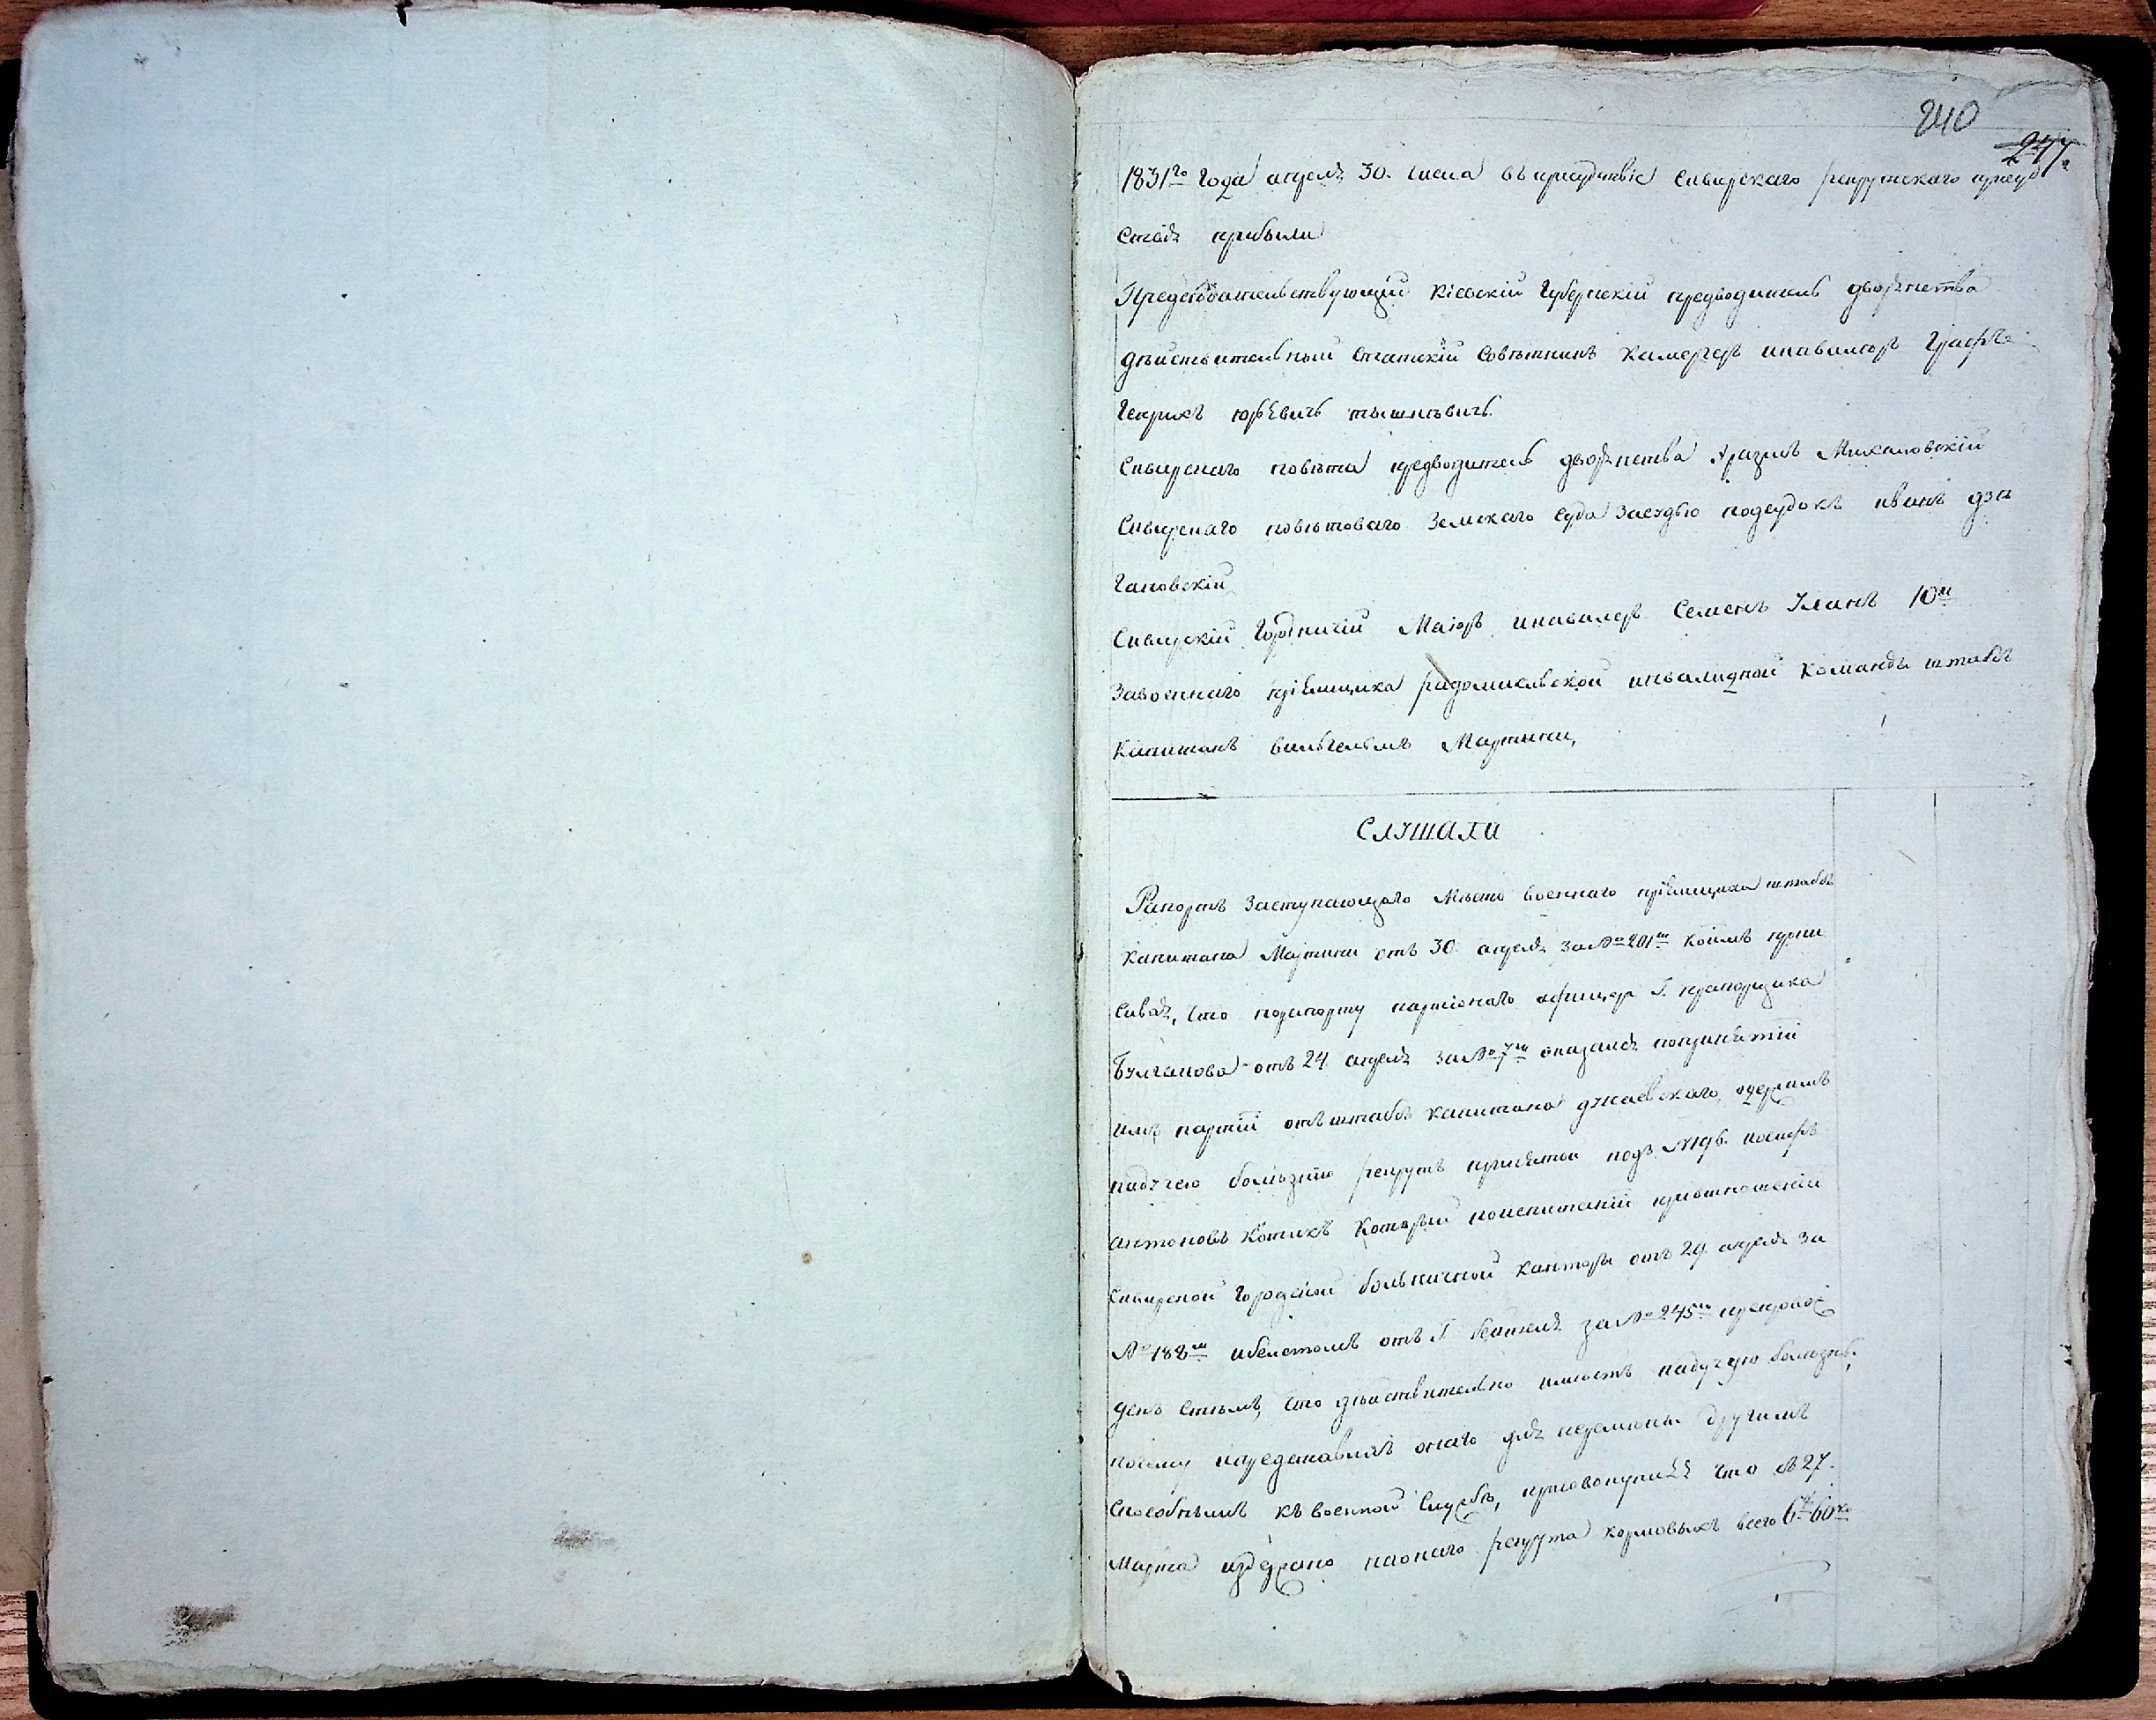 240
247
1831го года апреля 30. числа въ присудствіе Сквирскаго рекрутскаго присуд
ствія прибыли
Председательствующій Кіевскій Губернскій предводитель дворянства
дѣйствительный Статскій Совѣтникъ Камергеръ икавалеръ Графъ
Генрихъ юрьевичь тышкѣвичь.
Сквирскаго повѣта предводитель дворянства Эразмъ Михаловскій
Сквирскаго повѣтоваго Земскаго Суда Заседью подсудокъ иванъ дзи
гановскій
Сквирскій Городничій Маіоръ икавалеръ Семенъ Уланъ 10й
Завоеннаго пріемщика радомисльской инвалидной Команды штабсъ
Капитанъ вильгельмъ Мартини,
СЛУШАЛИ
Рапортъ Заступающаго Мѣсто военнаго пріемщика штабсъ
Капитана Мартини отъ 30 апреля за № 201м коимъ прпи
сывая, что порапорту партіоннаго офицера Г. прапорщика
Булгакова отъ 24 апреля за № 7м оказался попринятіи
имъ партіи отъ штабсъ капитана дунаевскаго, одержимъ
падучею болѣзнію рекрутъ принятой подъ № 196. иосифъ
антоновъ Котикъ Который поиспитаніи приотношеніи
Сквирской Городской больничной Канторы отъ 29 апреля за
№ 188м ибилетомъ отъ Г. за № 245м препровож
денъ стѣмъ, что дѣйствительно имѣетъ падучую болѣзнь,
почему ипредставляя онаго для перемѣны другимъ
Способнымъ къ военной Службѣ, присовокупляя что съ 27.
Марта издержано наонаго рекрута кормовыхъ всего 6р 60ко